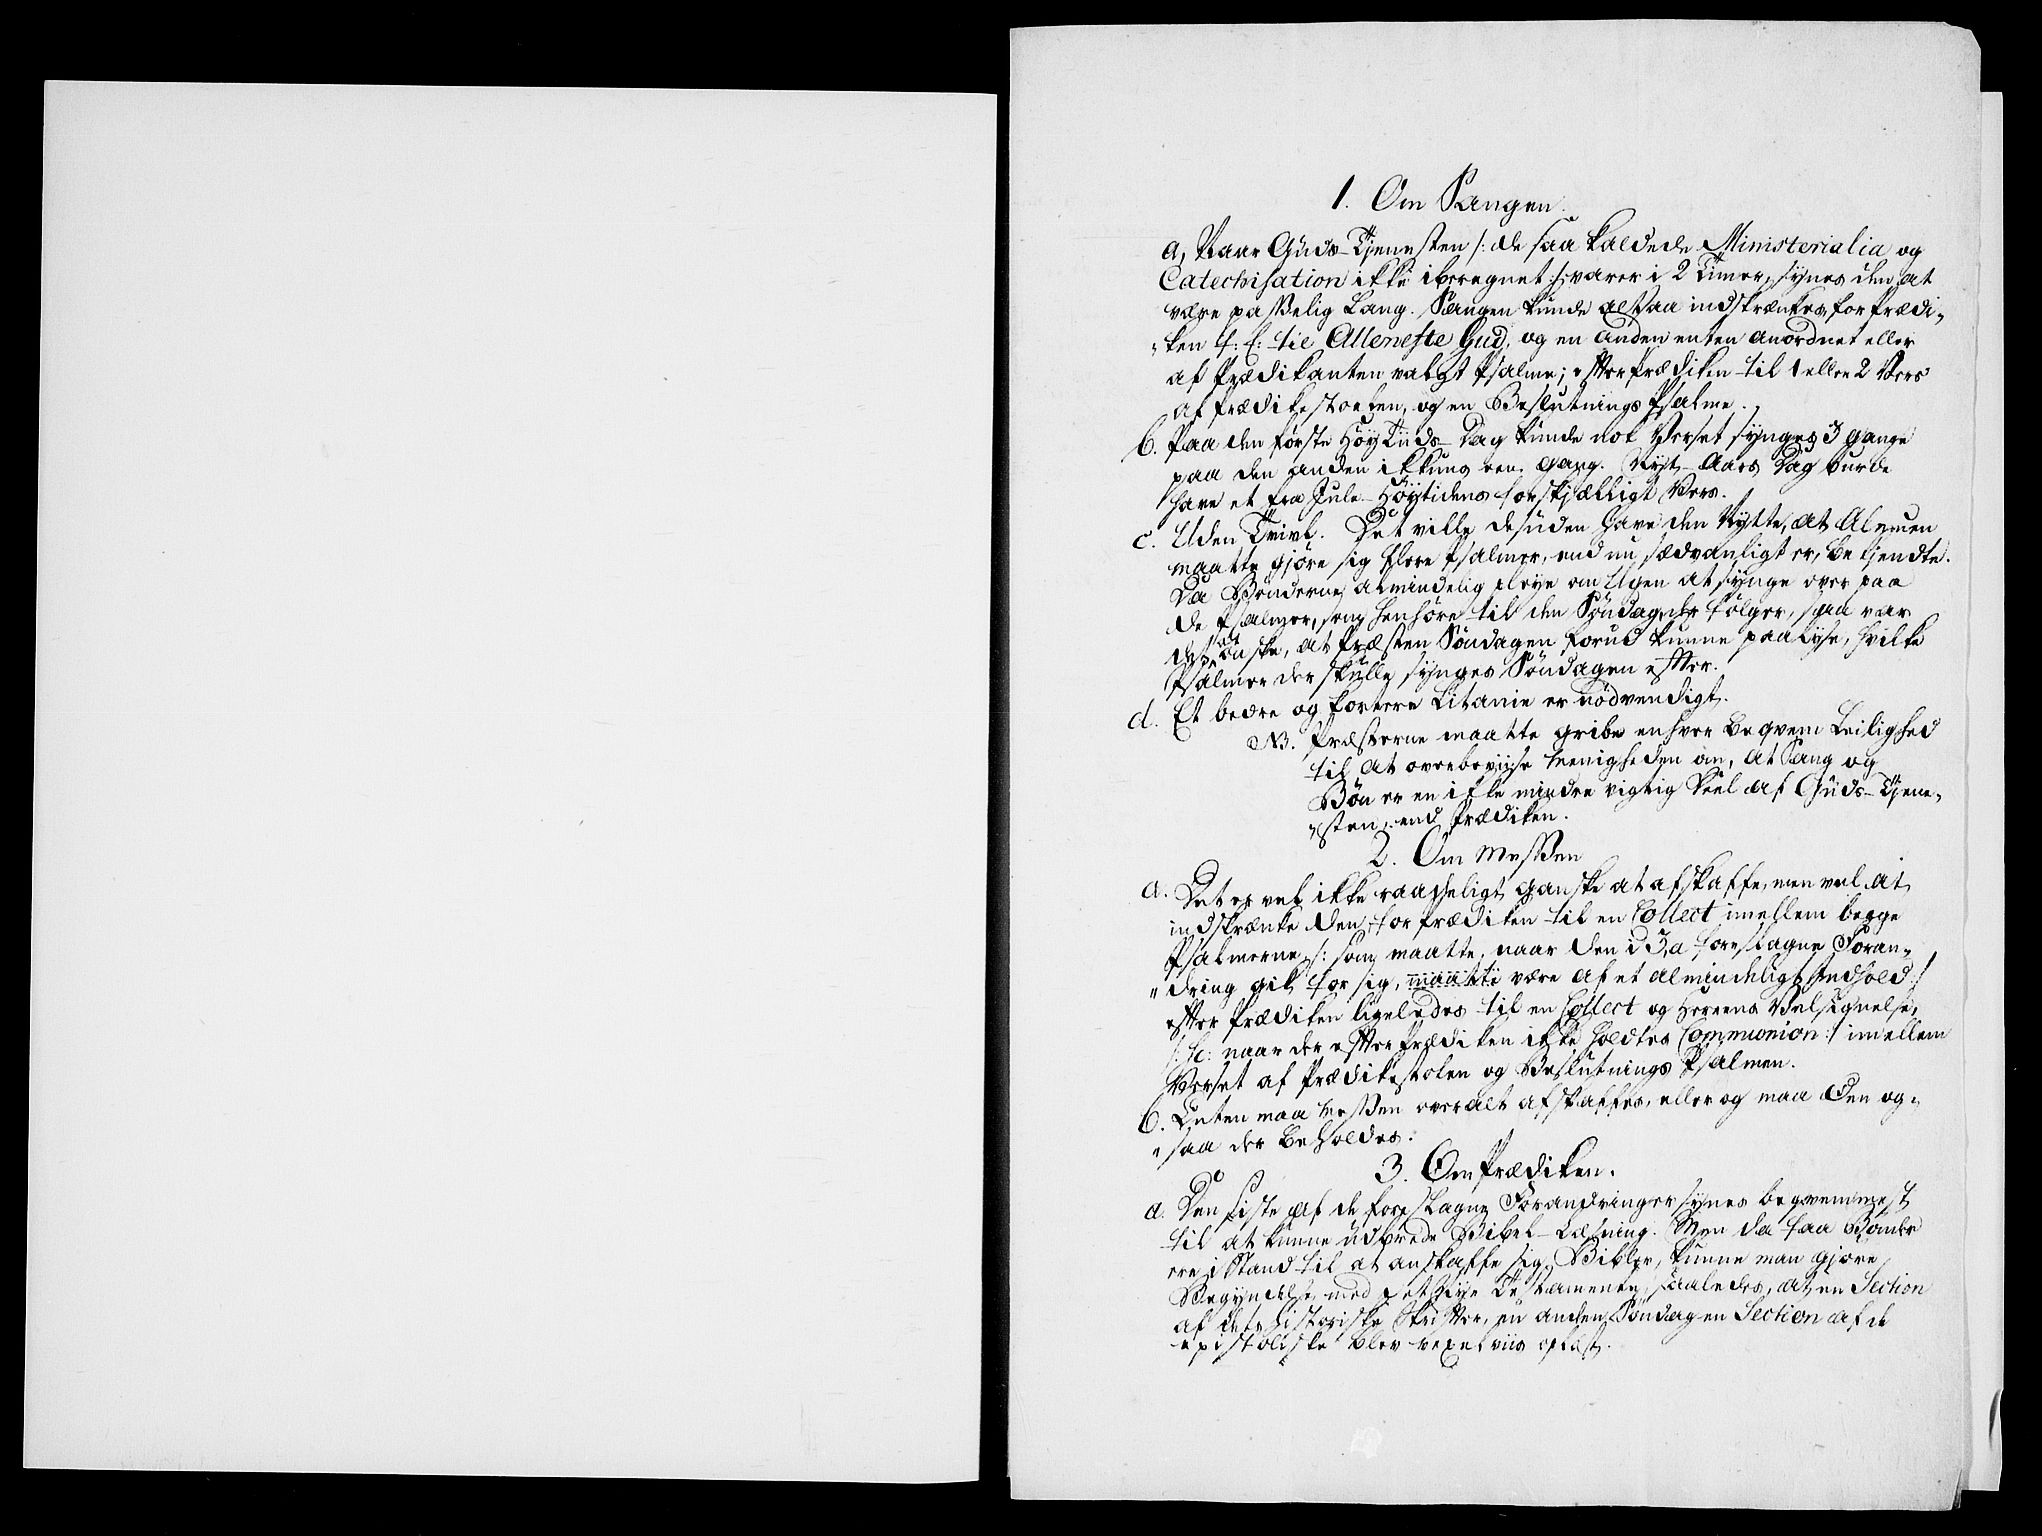 1. Om Sangen.
a, Naar Guds-Tjenesten /: de saa kaldede Ministerialia og
Catechisation ikke iberegnet :/ varer i 2 Timer, synes den at
være passelig Lang. Sangen kunde altsaa indskrænkes, for Prædi„
„ken f: E: til Alleneste Gud, og en anden enten anordnet eller
af Prædikanten valgt Psalme; efter Prædiken til 1 eller 2 Vers
af Prædikestoelen, og en Beslutnings Psalme.
b. Paa den første HøyTiids-Dag kunde nok Verset synges 3 gange
paa den anden ikkuns een gang. Nyt-Aars Dag burde
have et fra Jule-Høytidens forskjælligt Vers.
c. Uden Tvivl. Det ville desuden have den Nytte, at Almuen
maatte gjøre sig flere Psalmer, end nu sædvanligt er, bekjendte.
Da Bønderne almindelig pleye om Ugen at synge over paa
de Psalmer, som henhøre til den Søndag, der følger, saa var
det at ønske, at Præsten Søndagen forud kunne paalyse, hvilke
Psalmer der skulle synges Søndagen efter.
d. Et bedre og kortere Litanie er nødvendigt.
NB. Præsterne maatte gribe enhver beqvem Leilighed
til at overbeviise Menigheden om, at Sang og
Bøn er en ikke mindre vigtig Deel af Guds-Tjene„
„sten, end Prædiken.
2. Om Messen
a. Det er vel ikke raadeligt ganske at afskaffe, men vel at
indskrænke den for Prædiken til en Collect imellem begge
Psalmerne /: som maatte, naar den i 3, a foreslagne Foran„
„dring gik for sig, maatte være af et almindeligt Indhold :/
efter Prædiken ligeledes til en Collect og Herrens Velsignelse,
/: sc: naar der efter Prædiken ikke holdtes Communion :/ imellem
Verset af Prædikestolen og Beslutnings Psalmen.
b. Enten maa Messen overalt afskaffes, eller og maa den og„
„saa der beholdes.
3. Om Prædiken.
a. Den sidste af de foreslagne Forandringer synes beqvemmest
til at kunne udbrede Bibel-Læsning. Men da faa Bønder
ere i Stand til at anskaffe sig Bibler, kunne man gjøre
Begyndelse med det Nye Testamente, saaledes, at en Section
af dets historiske Skrifter, en anden Søndag en Section af de
epistoliske blev vexelviis oplæst.